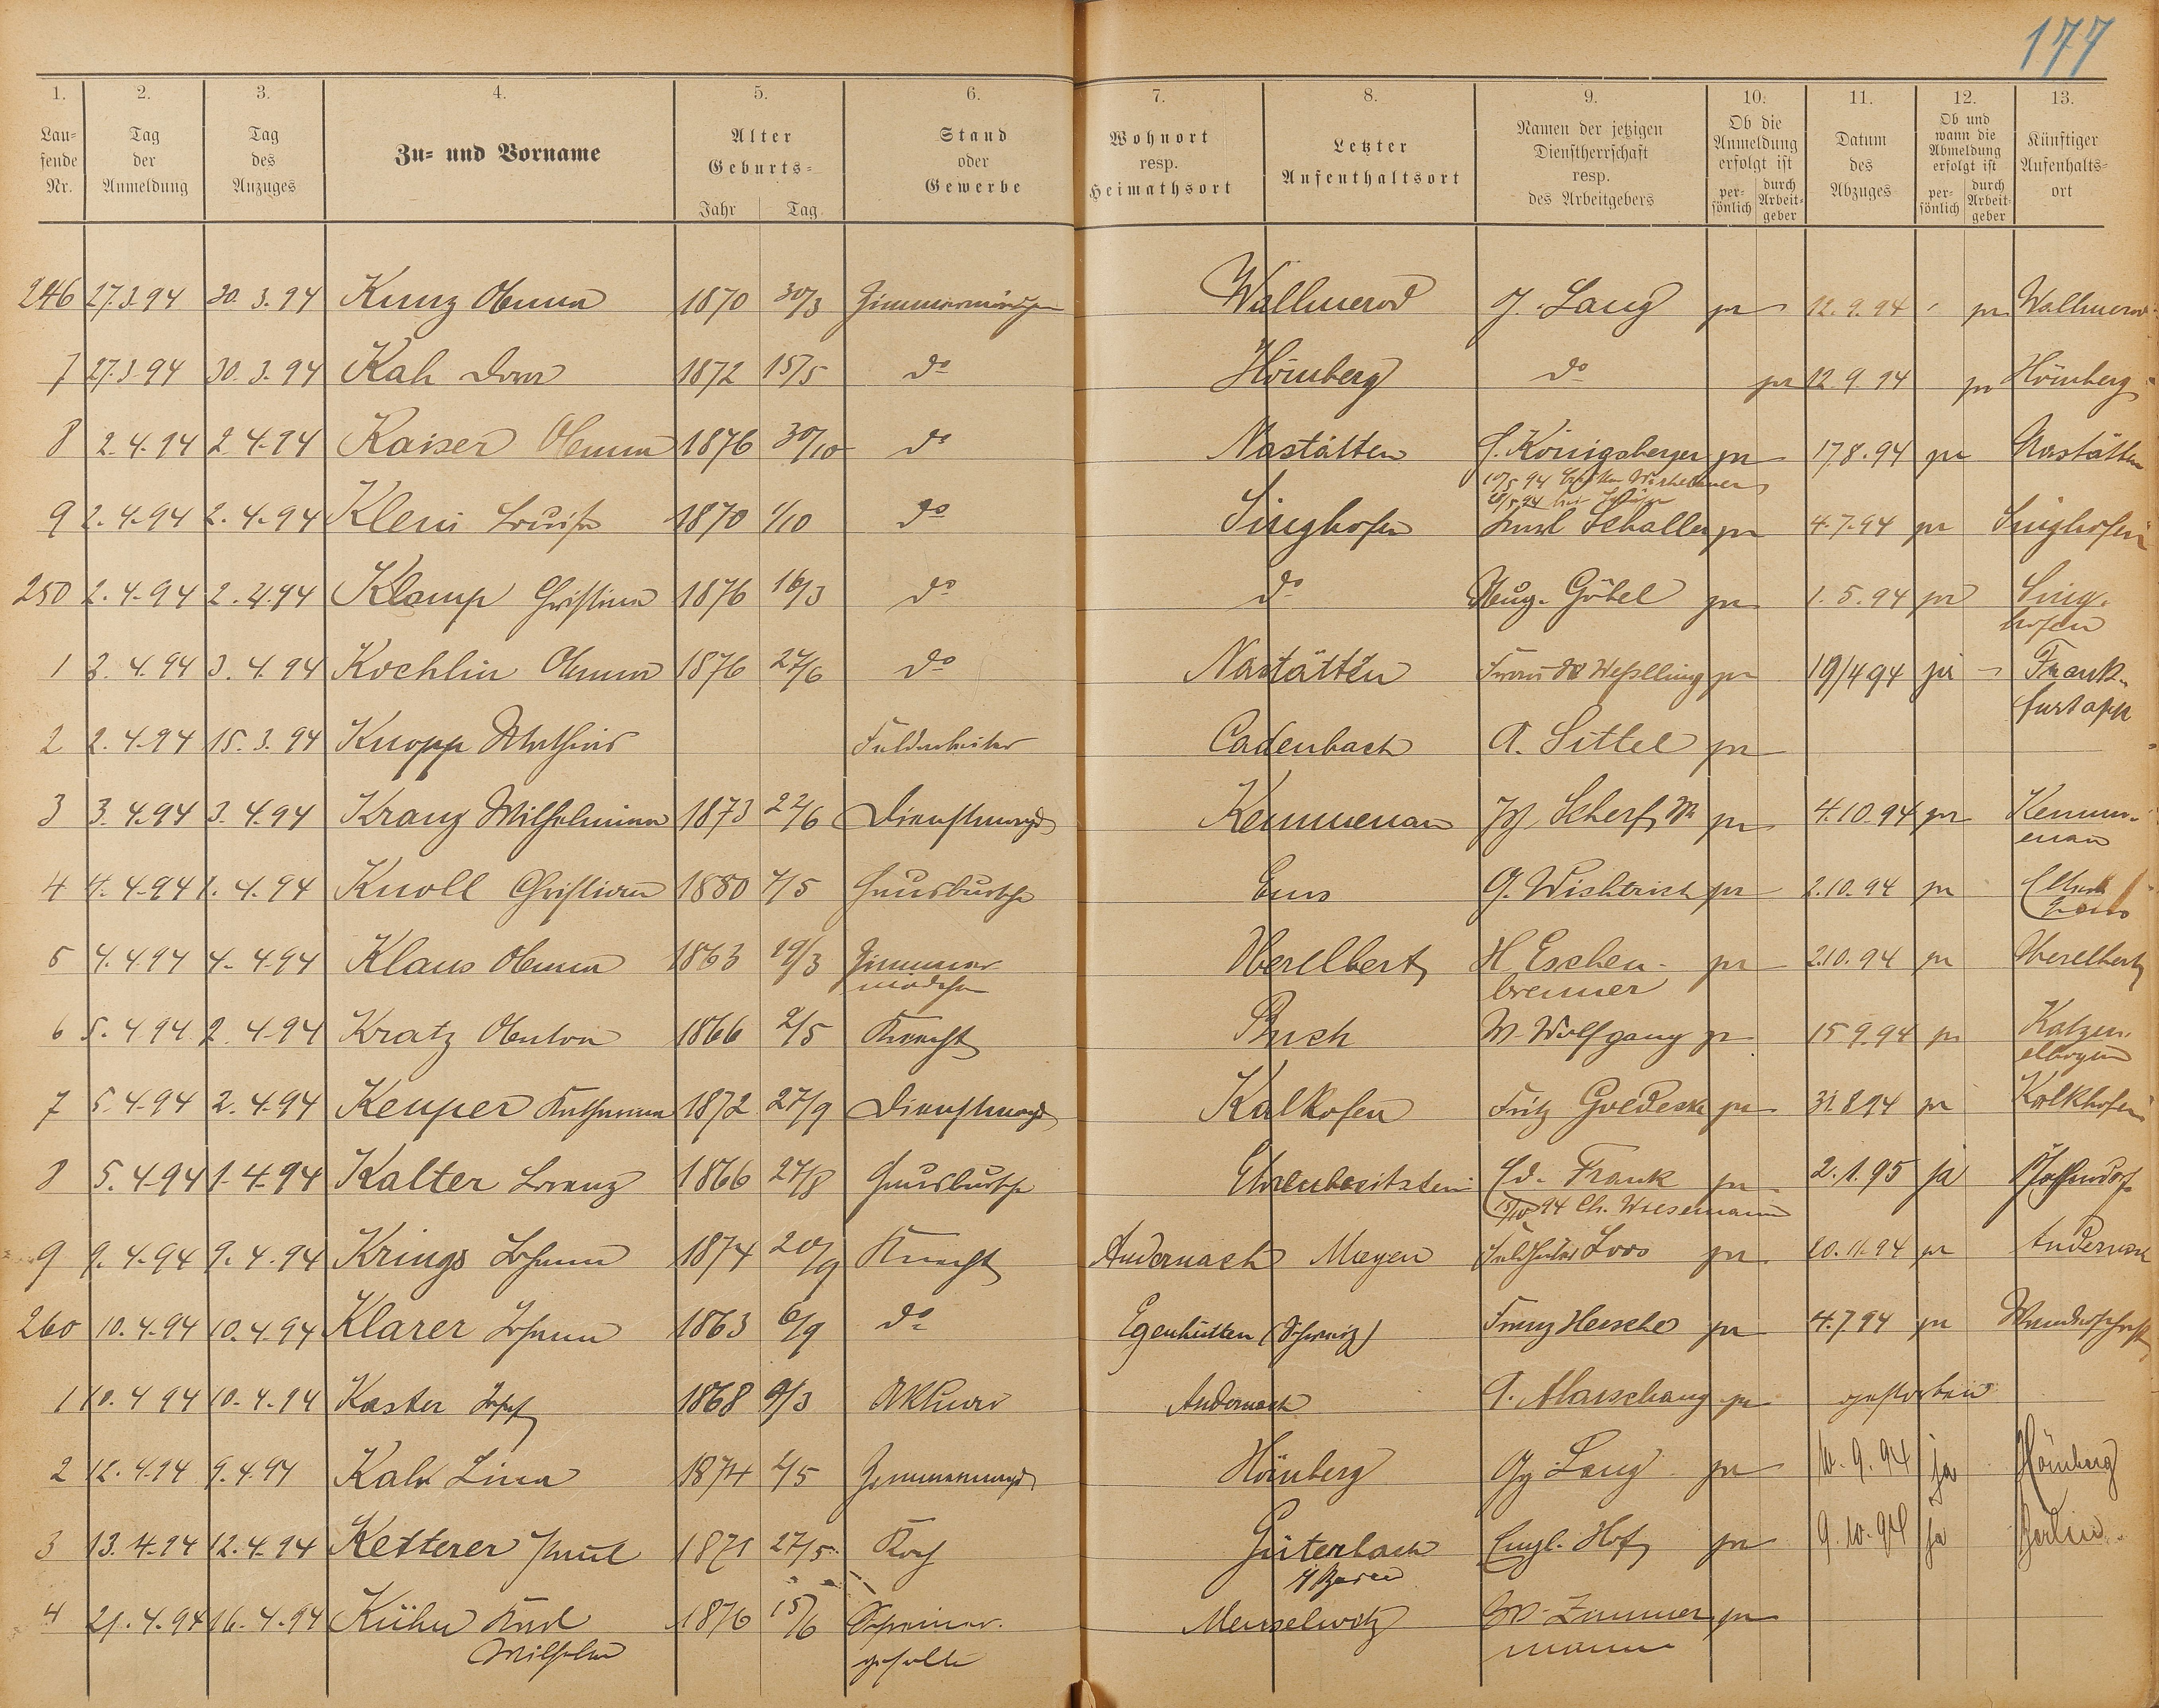 177
1. 2. 3. 4. 5. 6. 7. 8. 9. 10. 11. 12. 13.
Lau-
fende
Nr.
Tag
der
Anmeldung
Tag
des
Anzuges
Zu- und Vorname
Alter
Geburts-
Jahr Tag.
Stand
oder
Gewerbe
Wohnort
resp.
Heimathsort
Letzter
Aufenthaltsort
Namen der jetzigen
Dienstherrschaft
resp.
des Arbeitgebers
Ob die
Anmeldung
erfolgt ist
per-
sönlich
durch
Arbeit-
geber
Datum
des
Abzuges
Ob und
wann die
Abmeldung
erfolgt ist
per-
sönlich
durch
Arbeit-
geber
Künftiger
Aufenthalts-
ort
246 27.3.94 30.3.94 Kunz Anna 1870 30/3 Zimmermädchen Wallmerod J. Lang pr 12.9.94 pr Wallmerod
7 27.3.94 30.3.94 Kah 1872 15/5 do Hömberg do pr 12.9.94 pr Hömberg
8 2.4.94 2.4.94 Kaiser Anna 1876 30/10 do Nastätten S. Königsberger pr 17.8.94 pr Nastätten
10/5 94
9 2.4.94 2.4.94 Klein Louise 1870 1/10 do Singhofen Schaller pr 4.7.94 pr Singhofen
250 2.4.94 2.4.94 Klamp Christina 1876 16/3 do do Aug. Göbel pr 1.5.94 pr Sing-
hofen
1 3.4.94 3.4.94 Kochlin Anna 1876 27/6 do Nastätten Weßlling pr 19/4 94 pr Frank-
furt
2 2.4.94 15.3.94 Knopp Mathias Feldarbeiter Cadenbach A. Sittel pr
3 3.4.94 3.4.94 Kranz Wilhelmina 1873 22/6 Dienstmagd Kemmenau Scherf pr 4.10.94 pr Kemm-
enau
4 4.4.94 1.4.94 Knoll Christian 1880 7/5 Hausbursche Ems G. Wishtrich pr 2.10.94 pr
5 4.4.94 4.4.94 Klaus Anna 1863 19/3 Zimmer-
mädchen Oberelbert H. Eschen-
brenner pr 2.10.94 pr Oberelbert
6 5.4.94 2.4.94 Kratz Anton 1866 2/5 Knecht Buch W. Wolfgang pr 15.9.94 pr Katzen-
elbogen
7 5.4.94 2.4.94 Keuper Katharina 1872 27/9 Dienstmagd Kalkofen Fritz Goedecke pr 31.8.94 pr Kalkhofen
8 5.4.94 1.4.94 Kalter Lorenz 1866 27/8 Hausbursche Ehrenbreitstein Ed. Frank pr 2.1.95 ja Pfaffendorf
15/10 94 Ch. Wiesemann
9 9.4.94 9.4.94 Krings Johann 1874 20/9 Knecht Andernach Mayen Loos pr 20.11.94 pr Andernach
260 10.4.94 10.4.94 Klarer Johann 1863 6/9 do Egenhütten (Schweiz) Franz Hersche pr 4.7.94 pr Wanderschaft
1 10.4.94 10.4.94 Kaster Josef 1868 9/3 Aktuar Andernach A. Marschang pr gestorben
2 12.4.94 9.4.94 Kah Lina 1874 2/5 Hömberg Gg Lang pr 10.9.94 ja Hömberg
3 13.4.94 12.4.94 Ketterer Paul 1871 27/5 Koch Güterbach
i/ Baden Engl. Hof pr 9.10.94 ja Berlin
4 21.4.94 16.4.94 Kühn Karl
Wilhelm 1876 15/6 Schreiner-
geselle Meuselwitz W. Zimmer-
mann pr